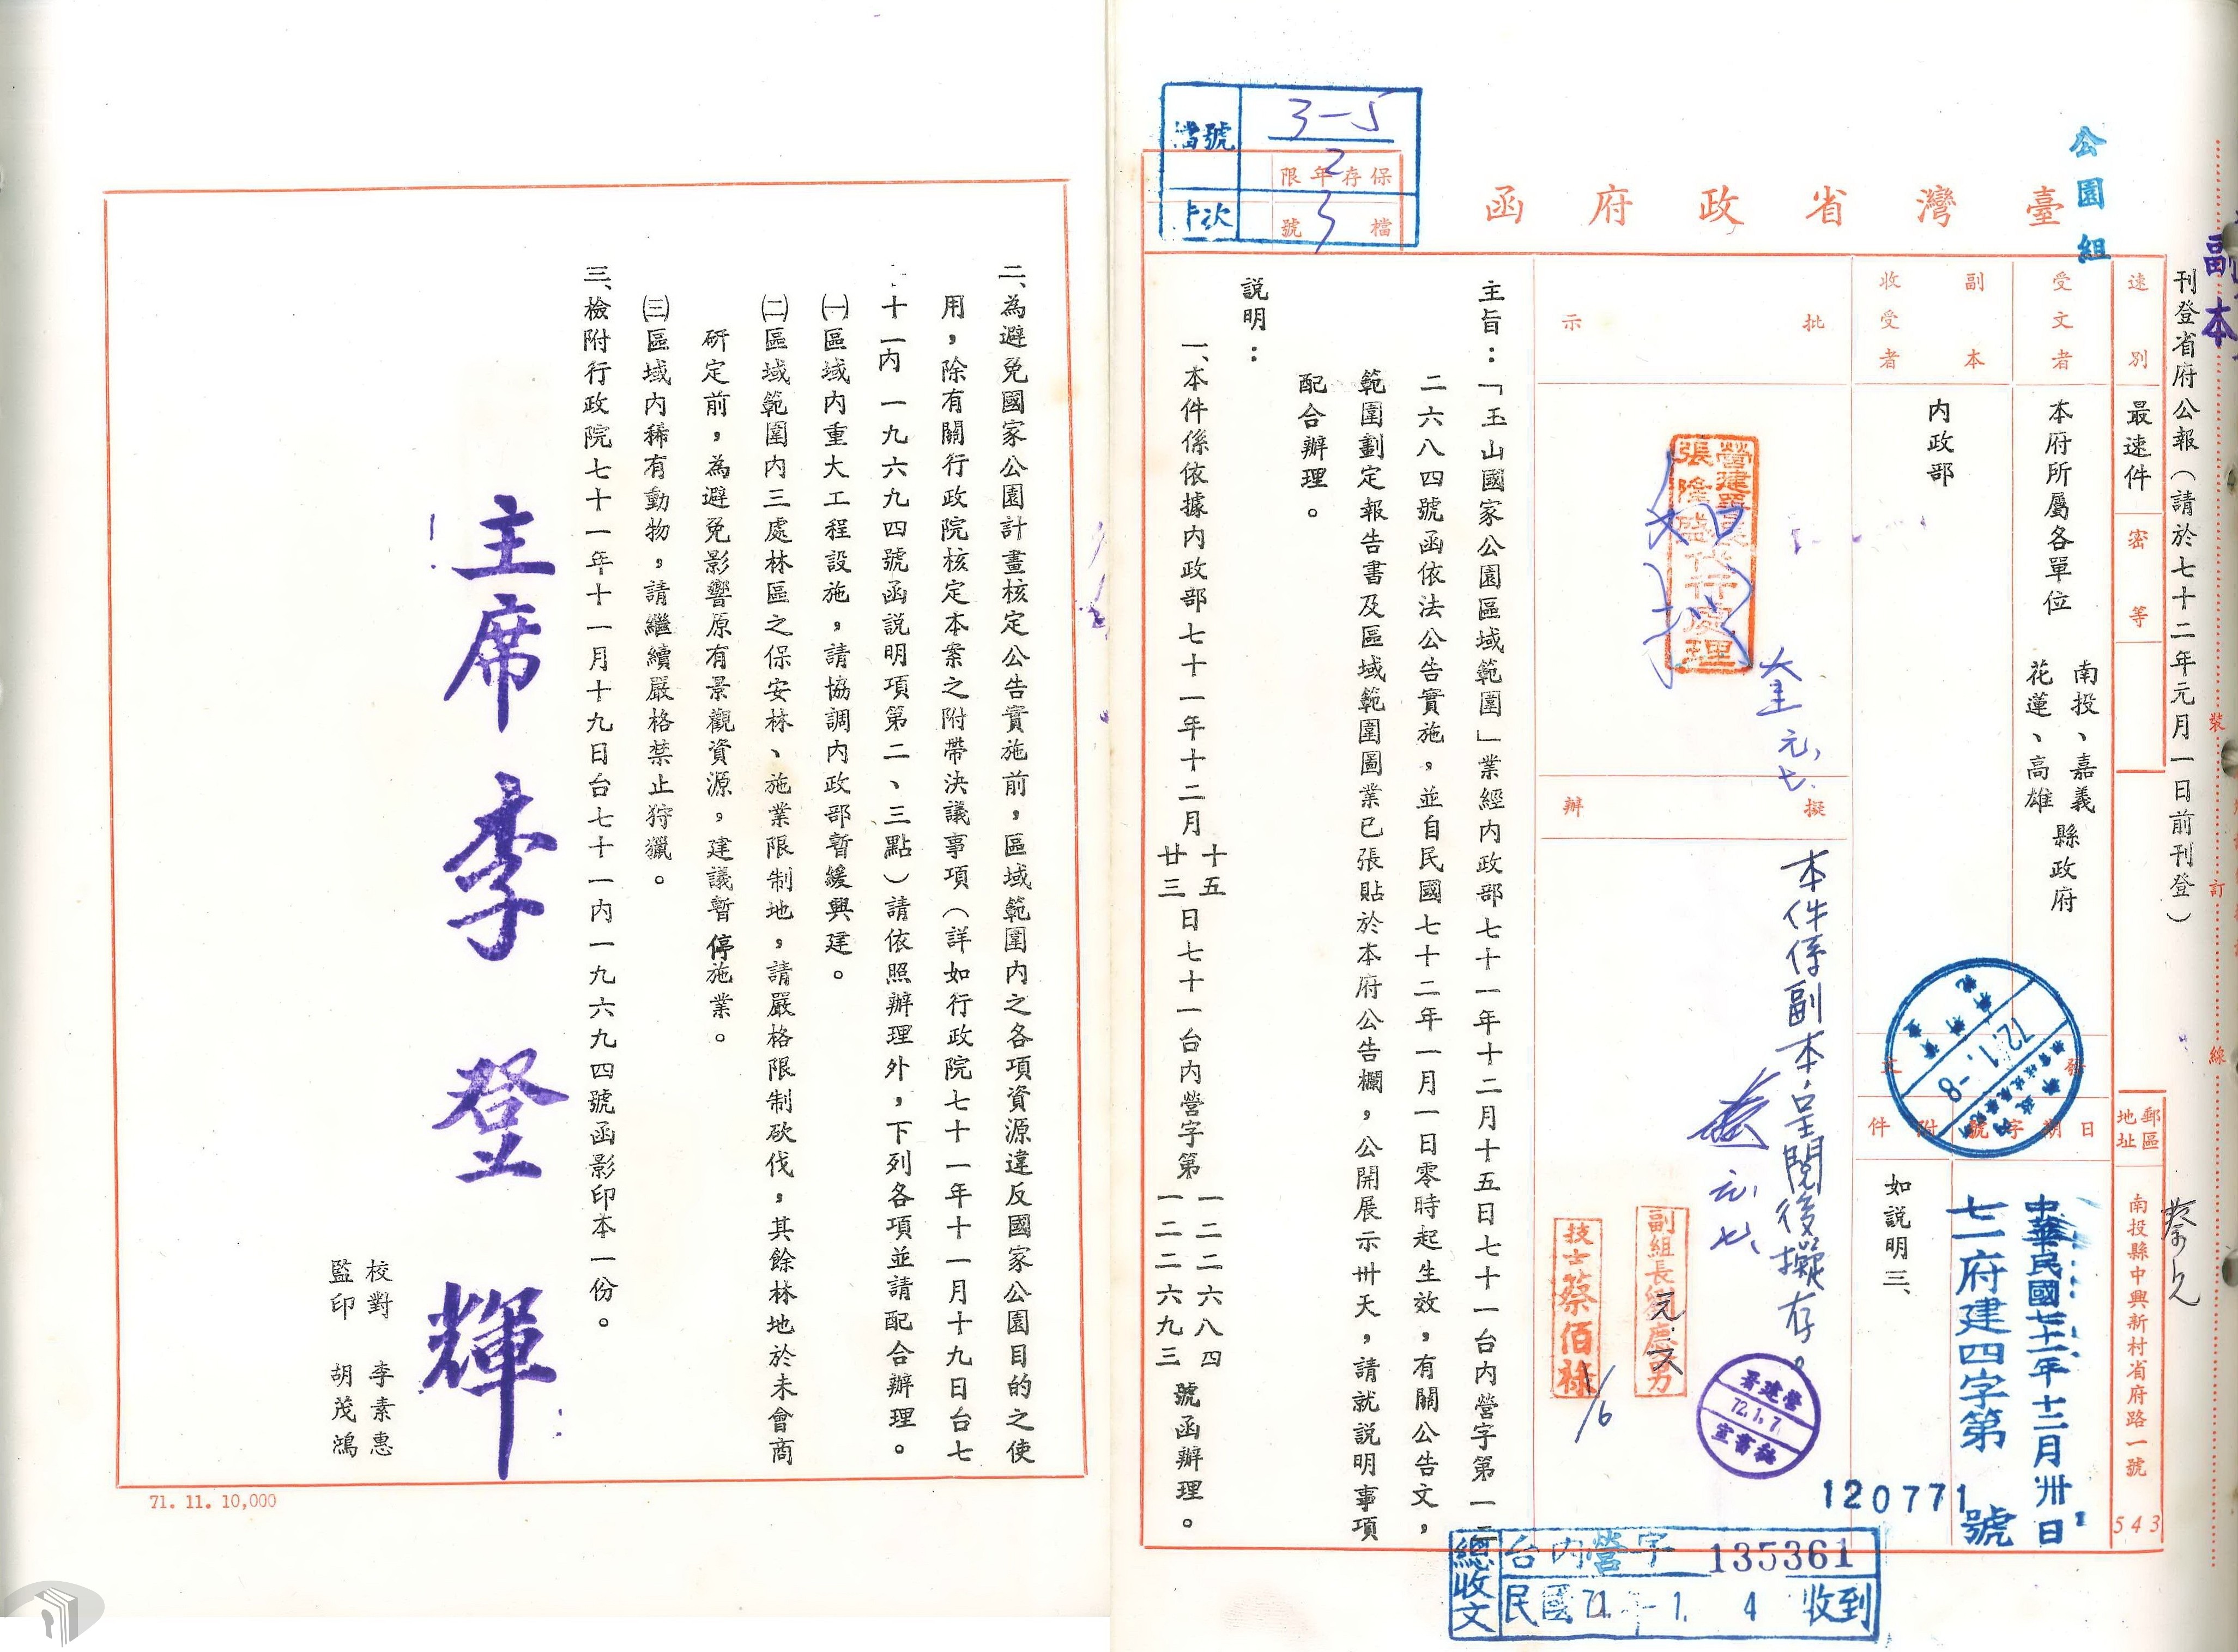 副本
刊登省府公報（請於七十二年元月一日前刊登）
公園組
臺灣省政府函
檔號
3-5
卡次
保存年限
2
檔號
3
速別
最速件
密等
郵區地址
南投縣中興新村省府路一號
543
受文者
本府所屬各單位
南投、嘉義
花蓮、高雄
縣政府
副本收受者
內政部
發文
日期
中華民國七十一年十二月卅一日
字號
七一府建四字第
120771
號
附件
如說明三、
批示
營建署長
張隆盛代行處理
元、七、
擬辦
本件係副本呈閱後擬存。
元、七、
技士蔡佰祿
1/6
營建署
72.1.7
秘書室
72.1.-8
裝
訂
線
主旨：「玉山國家公園區域範圍」業經內政部七十一年十二月十五日七十一台內營字第一二
二六八四號函依法公告實施，並自民國七十二年一月一日零時起生效，有關公告文，
範圍劃定報告書及區域範圍圖業已張貼於本府公告欄，公開展示卅天，請就說明事項
配合辦理。
說明：
一、本件係依據內政部七十一年十二月
十五
廿三
日七十一台內營字第
一二二六八四
一二二六九三
號函辦理。
總收文
台內營字 135361
1. 4 收到
二、為避免國家公園計畫核定公告實施前，區域範圍內之各項資源違反國家公園目的之使
用，除有關行政院核定本案之附帶決議事項（詳如行政院七十一年十一月十九日台七
十一內一九六九四號函說明項第二、三點）請依照辦理外，下列各項並請配合辦理。
㈠區域內重大工程設施，請協調內政部暫緩興建。
㈡區域範圍內三處林區之保安林、施業限制地，請嚴格限制砍伐，其餘林地於未會商
研定前，為避免影響原有景觀資源，建議暫停施業。
㈢區域內稀有動物，請繼續嚴格禁止狩獵。
三、檢附行政院七十一年十一月十九日台七十一內一九六九四號函影印本一份。
主席李登輝
校對 李素惠
監印 胡茂鴻
71. 11. 10,000